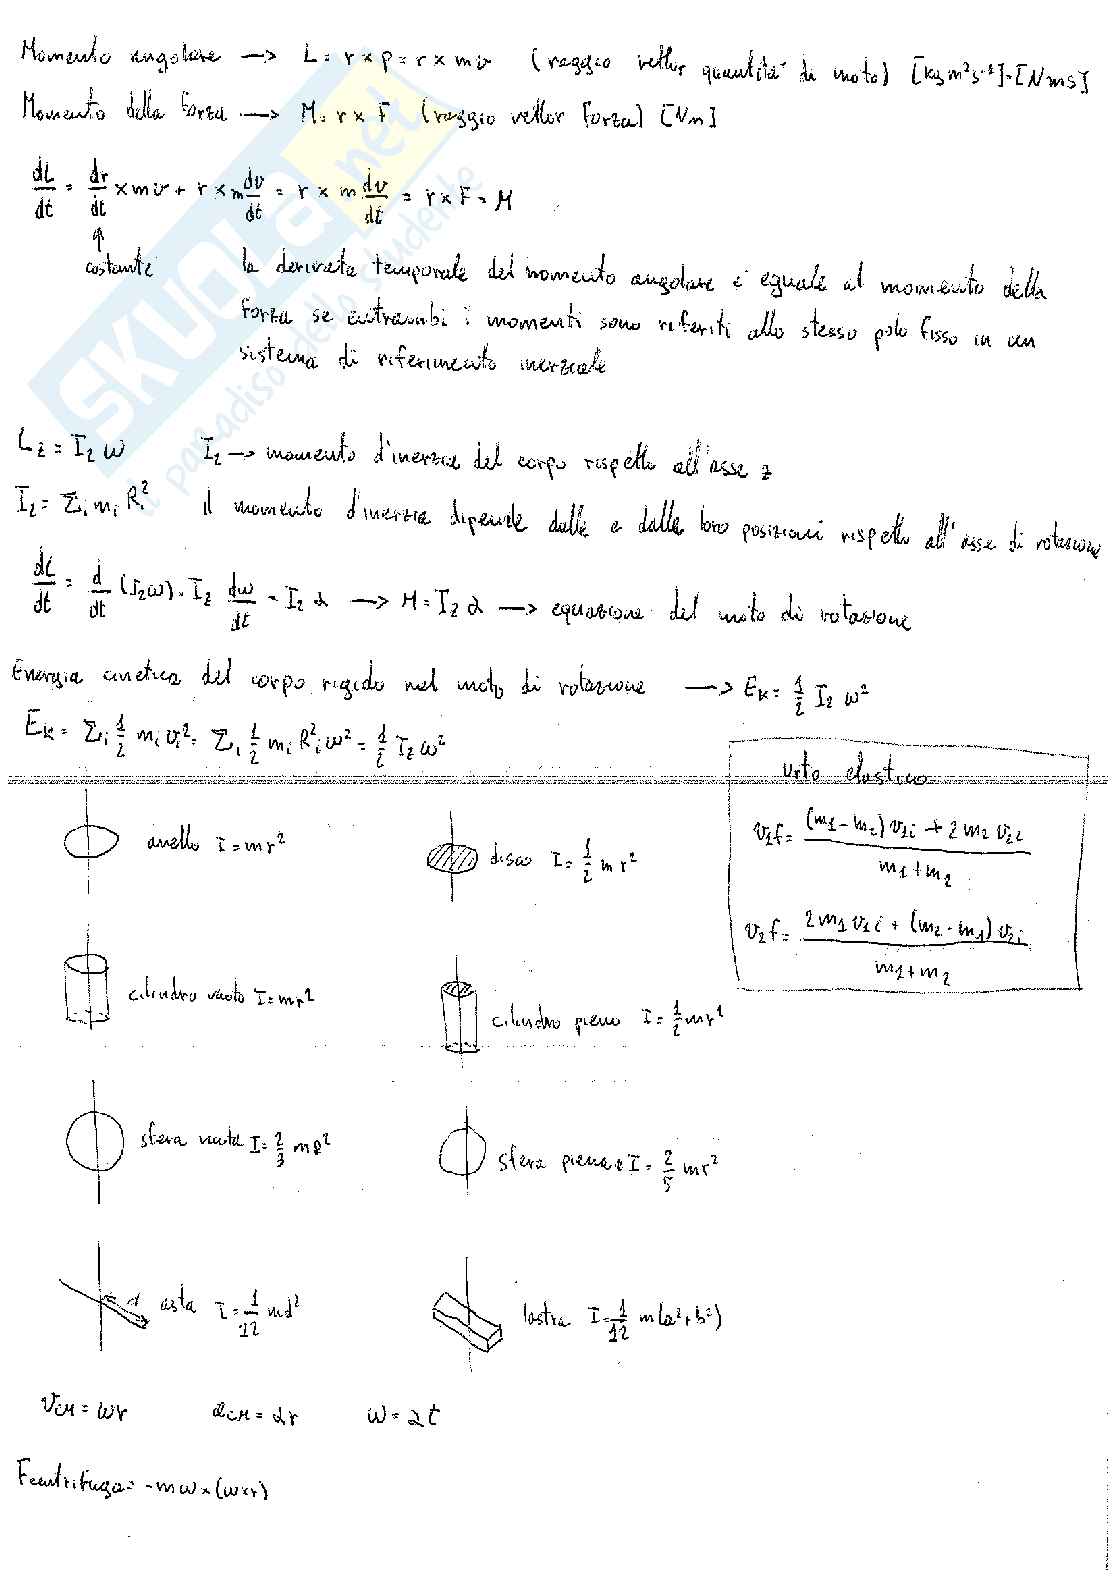 Momento angolare → L = r × p = r × mv (raggio vettor quantità di moto) [kg m² s⁻¹]=[Nms]
Momento della forza → M = r × F (raggio vettor forza) [Nm]
dL/dt = dr/dt × mv + r × m dv/dt = r × m dv/dt = r × F = M
↑
costante
la derivata temporale del momento angolare è eguale al momento della
forza se entrambi i momenti sono riferiti allo stesso polo fisso in un
sistema di riferimento inerziale
SKUOLA.net
il paradiso dello studente
Lz = Iz ω Iz → momento d'inerzia del corpo rispetto all'asse z
Iz = Σi mi Ri² il momento d'inerzia dipende dalle e dalle loro posizioni rispetto all'asse di rotazione
dL/dt = d/dt (Iz ω) = Iz dω/dt = Iz α → M = Iz α → equazione del moto di rotazione
Energia cinetica del corpo rigido nel moto di rotazione → Ek = 1/2 Iz ω²
Ek = Σi 1/2 mi vi² = Σi 1/2 mi Ri² ω² = 1/2 Iz ω²
urto elastico
v1f = ((m1 - m2) v1i + 2 m2 v2i)/(m1 + m2)
v2f = (2 m1 v1i + (m2 - m1) v2i)/(m1 + m2)
anello I = mr²
disco I = 1/2 mr²
cilindro vuoto I = mr²
cilindro pieno I = 1/2 mr²
sfera vuota I = 2/3 mR²
sfera piena I = 2/5 mr²
d asta I = 1/12 md²
lastra I = 1/12 m(a²+b²)
vCM = ωr aCM = αr ω = αt
Fcentrifuga = -mω × (ω×r)